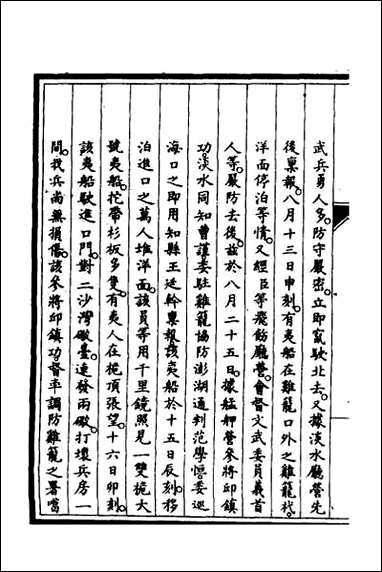 武兵勇人多防守嚴密立即竄駛北去又據淡水廳營先
後稟報八月十三日申刻有夷船在雞籠口外之雞籠杙
洋面停泊等情又經臣等飛飭廳營會督文武委員義首
人等嚴防去後茲於八月二十五日據艋舺營參將邱鎮
功淡水同知曹謹委駐雞籠協防澎湖通判范學恒委巡
海口之即用知縣王廷幹稟報該夷船於十五日辰刻移
泊進口之萬人堆洋面該員等用千里鏡照見一雙桅大
號夷船拕帶杉板多隻有夷人在桅頂張望十六日卯刻
該夷船駛進口門對二沙灣礮臺連發兩礮打壞兵房一
間我兵尚無損傷該參將邱鎮功督平調防雞籠之署噹